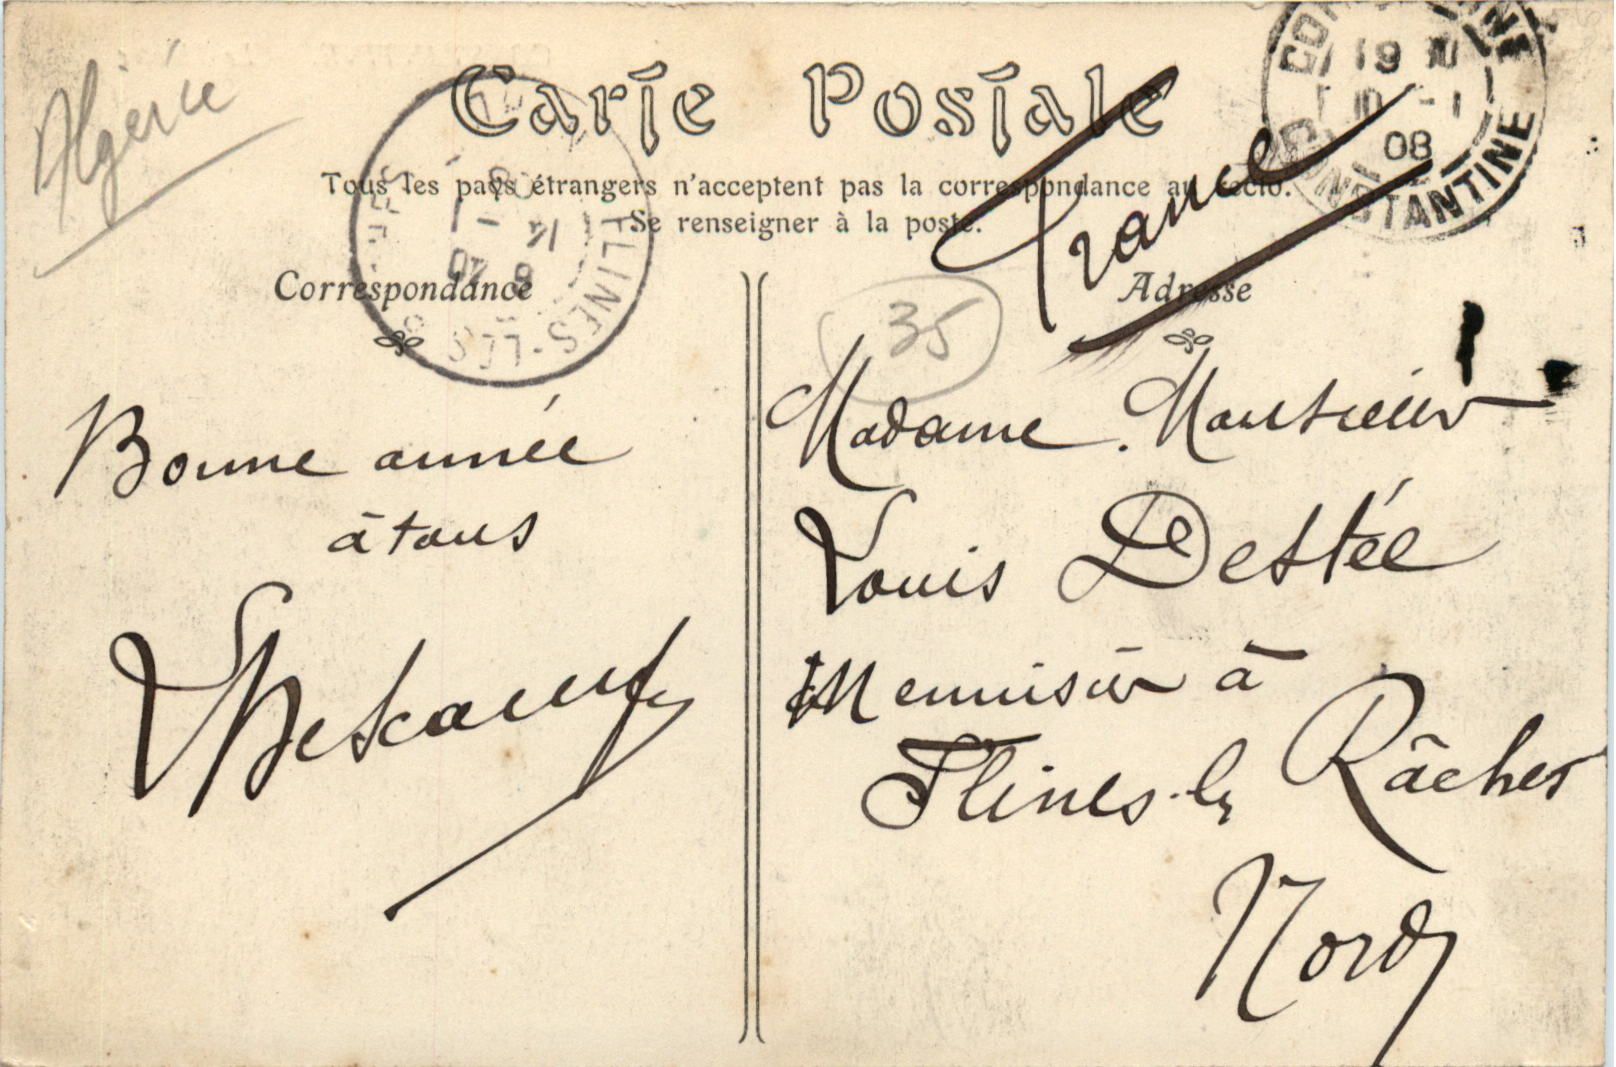 Algérie
Carte Postale
Tous les pays étrangers n'acceptent pas la correspondance au recto.
Se renseigner à la poste.
France
CONSTANTINE
19
10 -1
08
CONSTANTINE
FLINES-LES
Correspondance
Adresse
35
Bonne année
à tous
Madame. Monsieur
Louis Destée
Menuisier à
Flines-lez Râches
Nord